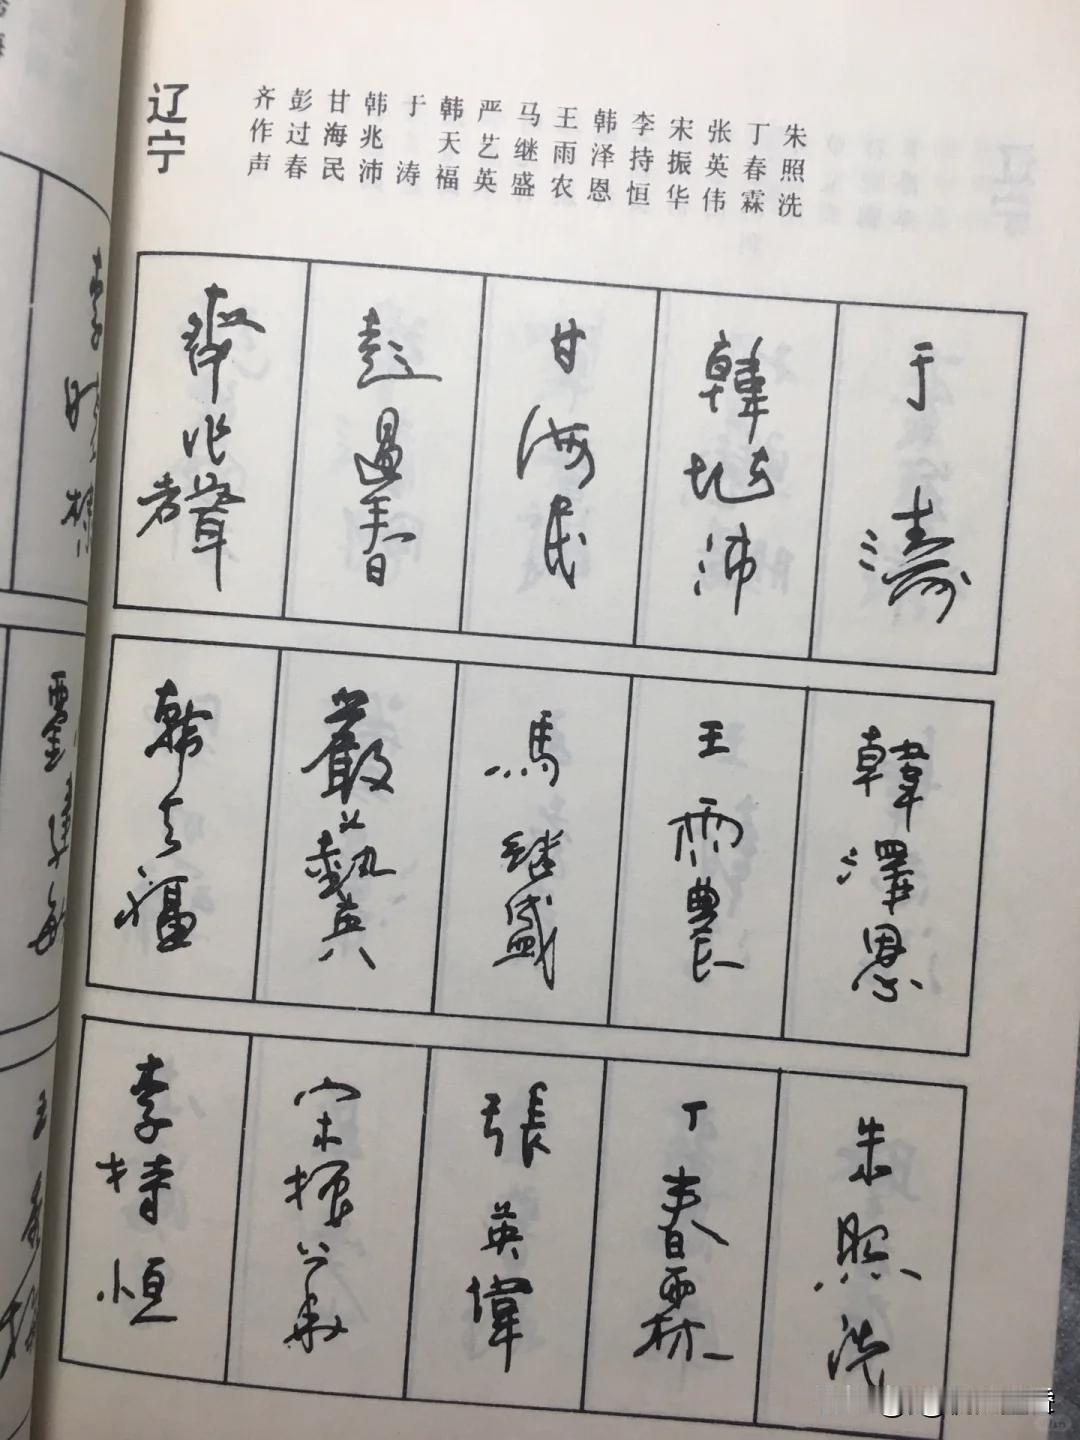 辽宁
齐作声
彭过春
甘海民
韩兆沛
于涛
韩天福
严艺英
马继盛
王雨农
韩泽恩
李持恒
宋振华
张英伟
丁春霖
朱照洗
齊作聲
彭過春
甘海民
韓兆沛
于濤
韓天福
嚴藝英
馬繼盛
王雨農
韓澤恩
李持恒
宋振華
張英偉
丁春霖
朱照洗